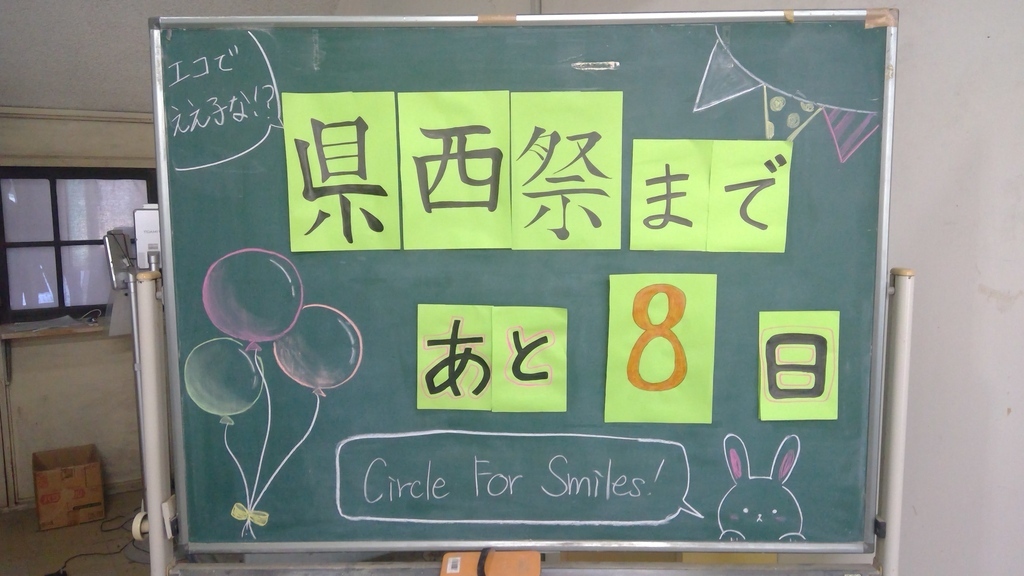 エコで
ええ子な!?
県西祭まで
あと8日
Circle For Smiles!